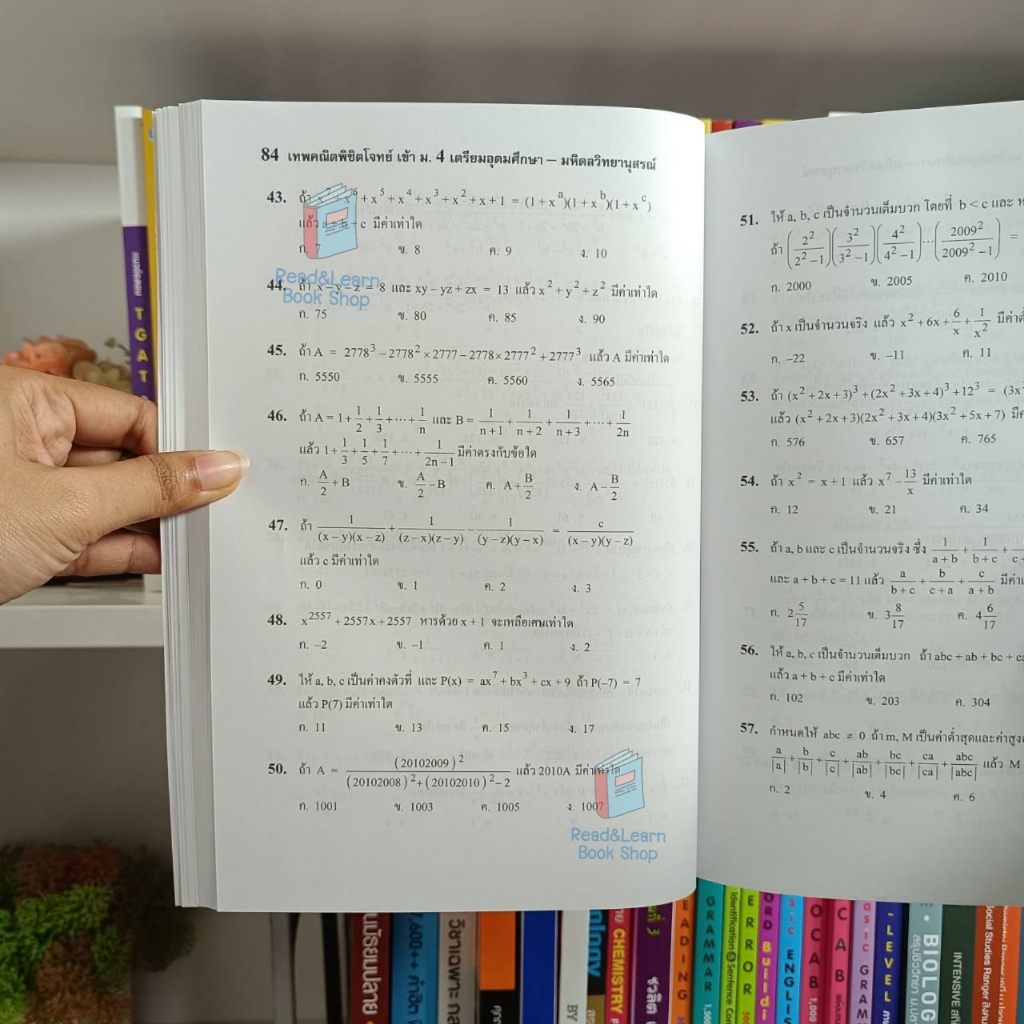 84 เทพคณิตพิชิตโจทย์ เข้า ม. 4 เตรียมอุดมศึกษา – มหิดลวิทยานุสรณ์
43. ถ้า x⁷ + x⁶ + x⁵ + x⁴ + x³ + x² + x + 1 = (1 + xᵃ)(1 + xᵇ)(1 + xᶜ)
แล้ว a + b + c มีค่าเท่าใด
ก. 7 ข. 8 ค. 9 ง. 10
Read&Learn
Book Shop
44. ถ้า x – y – z = 8 และ xy – yz + zx = 13 แล้ว x² + y² + z² มีค่าเท่าใด
ก. 75 ข. 80 ค. 85 ง. 90
45. ถ้า A = 2778³ – 2778² × 2777 – 2778 × 2777² + 2777³ แล้ว A มีค่าเท่าใด
ก. 5550 ข. 5555 ค. 5560 ง. 5565
46. ถ้า A = 1 + 1/2 + 1/3 + ⋯ + 1/n และ B = 1/(n+1) + 1/(n+2) + 1/(n+3) + ⋯ + 1/2n
แล้ว 1 + 1/3 + 1/5 + 1/7 + ⋯ + 1/(2n–1) มีค่าตรงกับข้อใด
ก. A/2 + B ข. A/2 – B ค. A + B/2 ง. A – B/2
47. ถ้า 1/((x–y)(x–z)) + 1/((z–x)(z–y)) – 1/((y–z)(y–x)) = c/((x–y)(y–z))
แล้ว c มีค่าเท่าใด
ก. 0 ข. 1 ค. 2 ง. 3
48. x²⁵⁵⁷ + 2557x + 2557 หารด้วย x + 1 จะเหลือเศษเท่าใด
ก. –2 ข. –1 ค. 1 ง. 2
49. ให้ a, b, c เป็นค่าคงตัวที่ และ P(x) = ax⁷ + bx³ + cx + 9 ถ้า P(–7) = 7
แล้ว P(7) มีค่าเท่าใด
ก. 11 ข. 13 ค. 15 ง. 17
50. ถ้า A = (20102009)²/((20102008)² + (20102010)² – 2) แล้ว 2010A มีค่าเท่าใด
ก. 1001 ข. 1003 ค. 1005 ง. 1007
Read&Learn
Book Shop
51. ให้ a, b, c เป็นจำนวนเต็มบวก โดยที่ b < c และ
ถ้า (2²/(2²–1))(3²/(3²–1))(4²/(4²–1))⋯(2009²/(2009²–1)) =
ก. 2000 ข. 2005 ค. 2010
52. ถ้า x เป็นจำนวนจริง แล้ว x² + 6x + 6/x + 1/x² มีค่า
ก. –22 ข. –11 ค. 11
53. ถ้า (x² + 2x + 3)³ + (2x² + 3x + 4)³ + 12³ = (3x²
แล้ว (x² + 2x + 3)(2x² + 3x + 4)(3x² + 5x + 7)
ก. 576 ข. 657 ค. 765
54. ถ้า x² = x + 1 แล้ว x⁷ – 13/x มีค่าเท่าใด
ก. 12 ข. 21 ค. 34
55. ถ้า a, b และ c เป็นจำนวนจริง ซึ่ง 1/(a+b) + 1/(b+c) +
และ a + b + c = 11 แล้ว a/(b+c) + b/(c+a) + c/(a+b)
ก. 2 5/17 ข. 3 8/17 ค. 4 6/17
56. ให้ a, b, c เป็นจำนวนเต็มบวก ถ้า abc + ab + bc +
แล้ว a + b + c มีค่าเท่าใด
ก. 102 ข. 203 ค. 304
57. กำหนดให้ abc ≠ 0 ถ้า m, M เป็นค่าต่ำสุดและค่าสูง
a/|a| + b/|b| + c/|c| + ab/|ab| + bc/|bc| + ca/|ca| + abc/|abc| แล้ว M
ก. 2 ข. 4 ค. 6
TGAT
CHEMISTRY
READING
GRAMMAR
Identification & Sentence
ERROR
ENGLIS
VOCAB
GRAM
LEVEL
BIOLOG
INTENSIVE
Social Studies Ranger